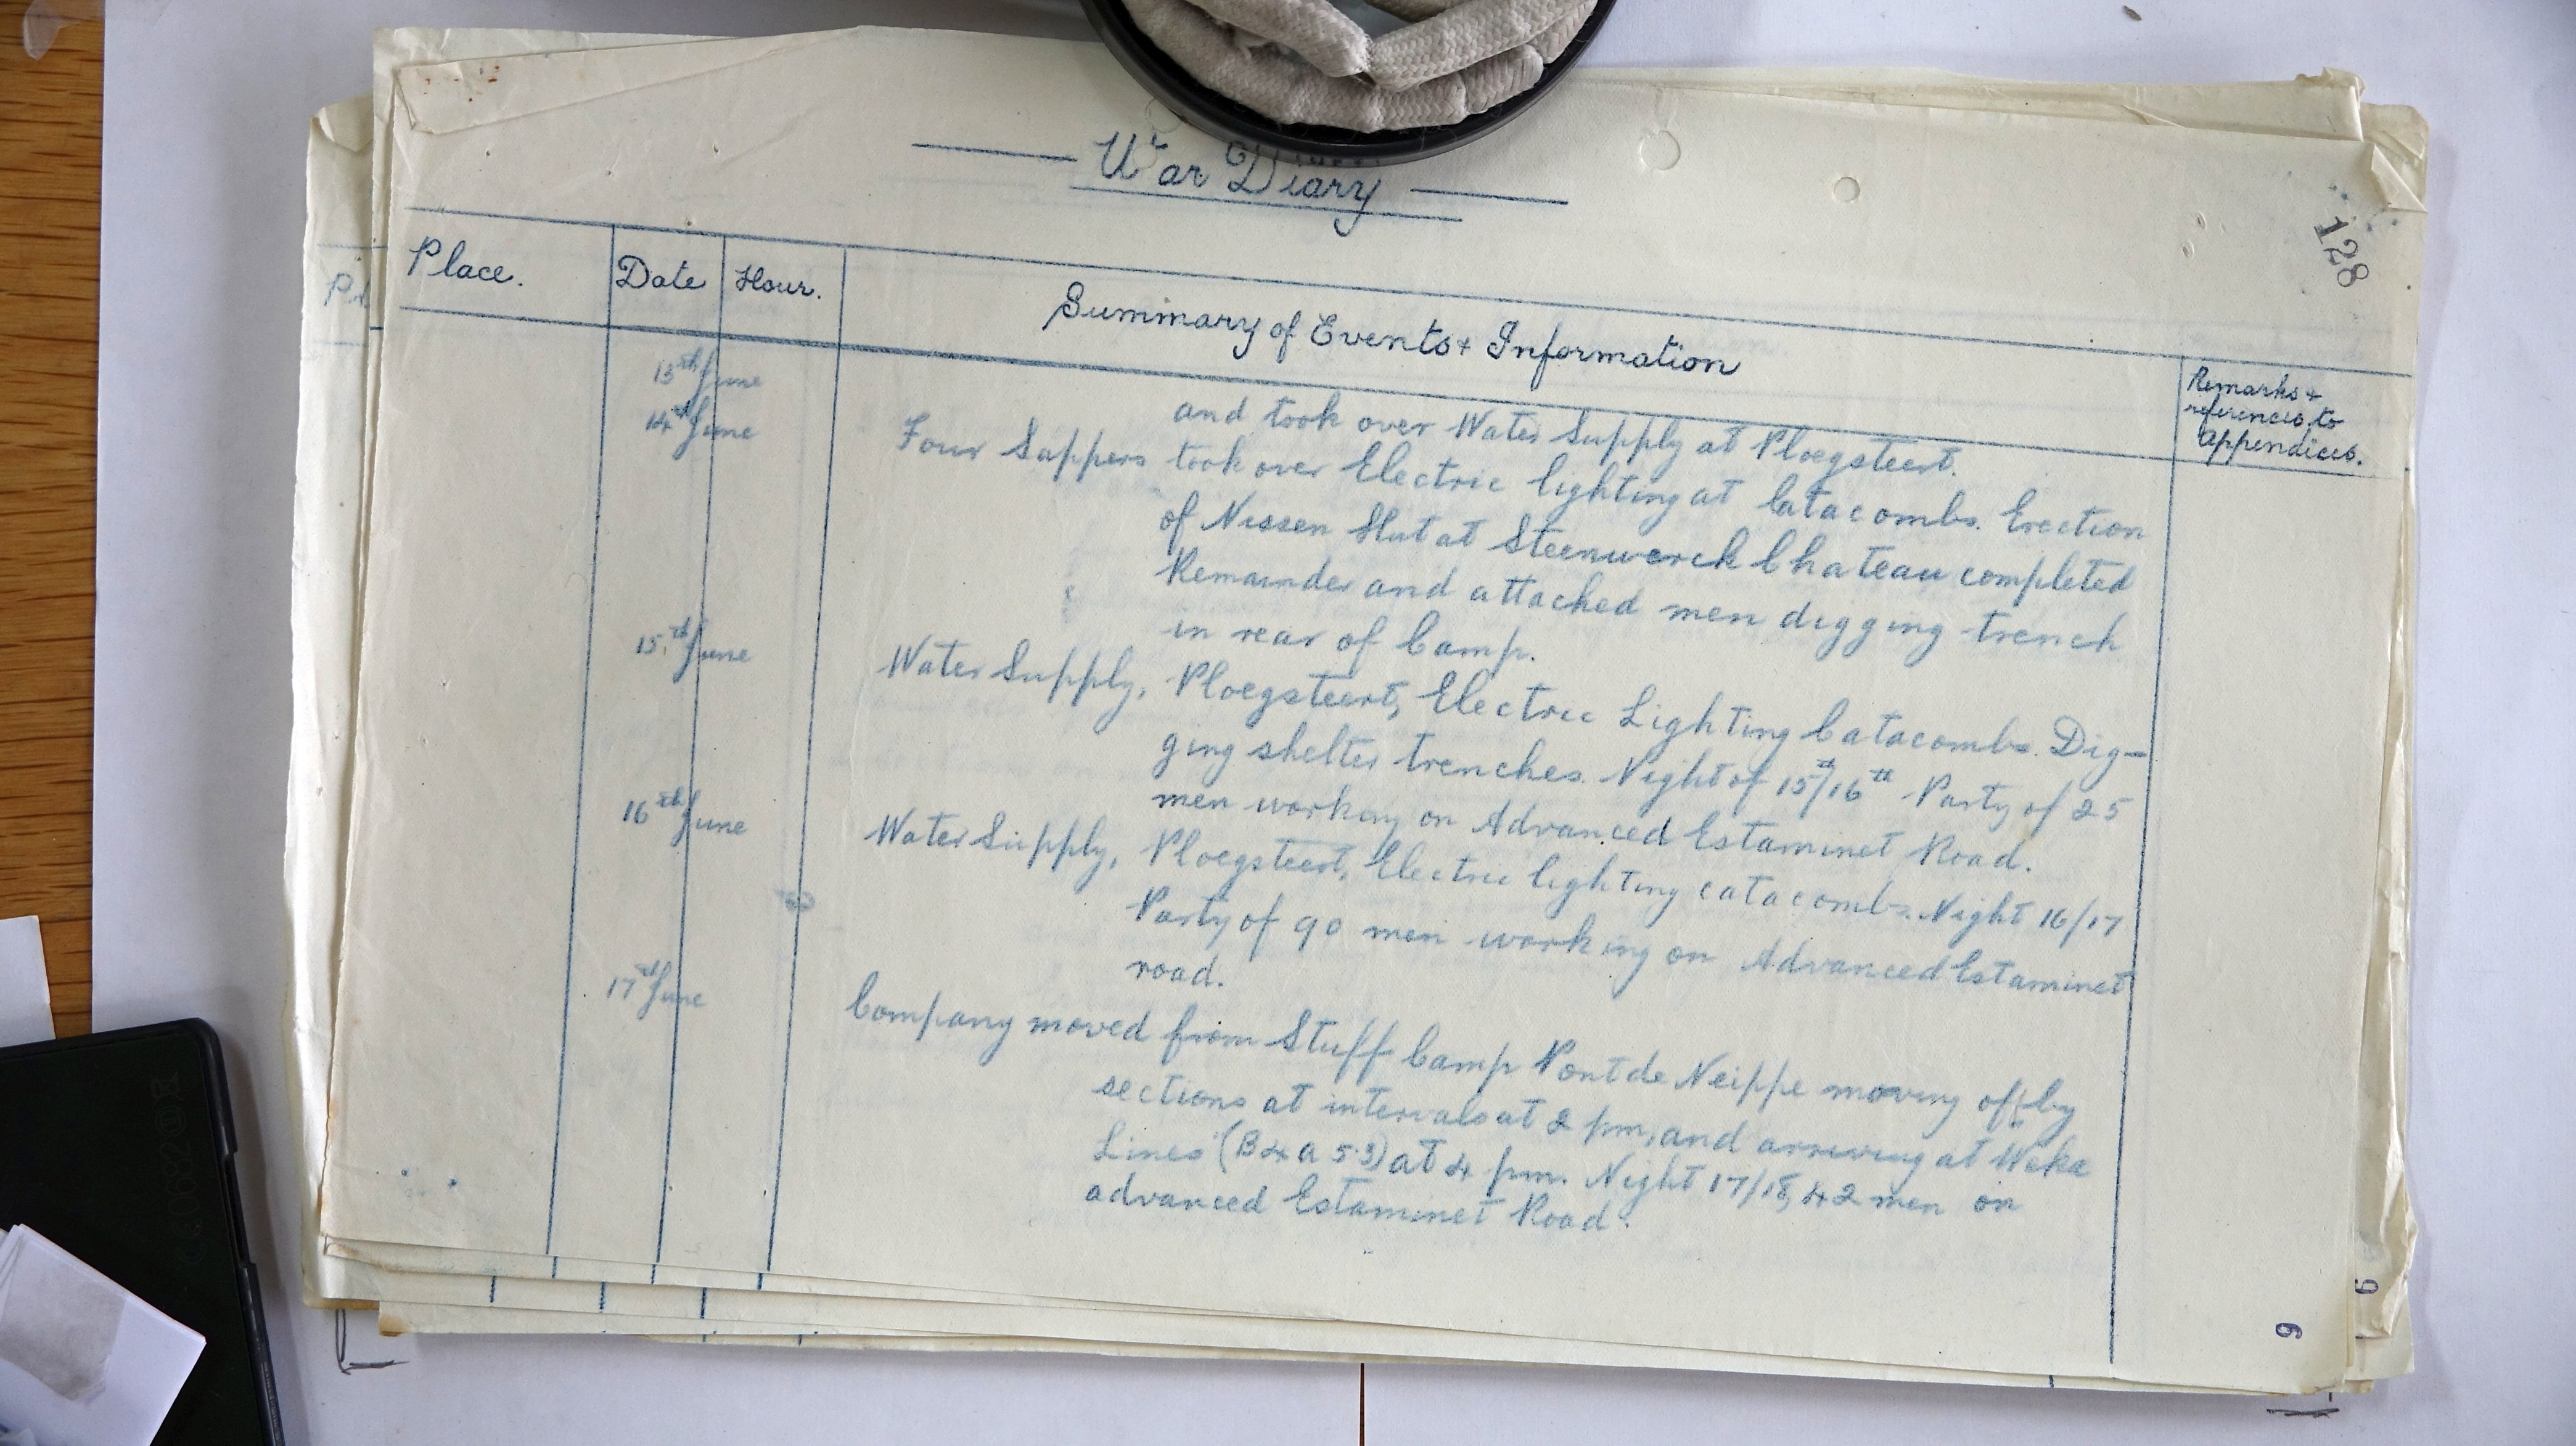 War Diary
128
Place.
Date
Hour.
Summary of Events & Information
Remarks &
references to
Appendices.
13th June
and took over Water Supply at Ploegsteert.
14th June
Four Sappers took over Electric lighting at Catacombs. Erection
of Nissen Hut at Steenwerck Chateau completed
Remainder and attached men digging trench
in rear of Camp.
15th June
Water Supply, Ploegsteert, Electric Lighting Catacombs. Dig-
ging shelter trenches. Night of 15th/16th Party of 25
men working on Advanced Estaminet Road.
16th June
Water Supply, Ploegsteert, Electric lighting catacombs. Night 16/17
Party of 90 men working on Advanced Estaminet
road.
17th June
Company moved from Stuff Camp Pont de Neippe moving off by
sections at intervals at 2 pm, and arriving at Weka
Lines (B4 a 5.3) at 4 pm. Night 17/18, 42 men on
advanced Estaminet Road.
9
9